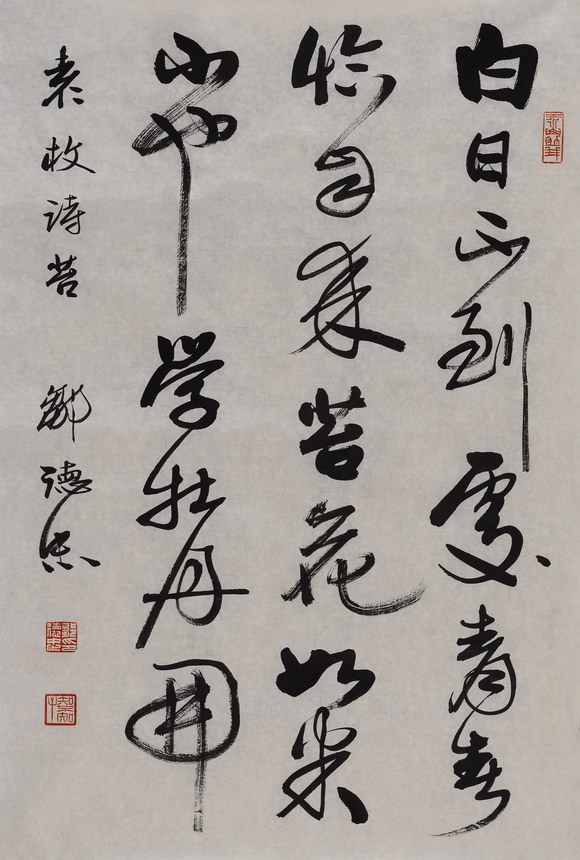 白日不到處青春
恰自来苔花如米
小也学牡丹開
袁枚诗苔 鄒德忠